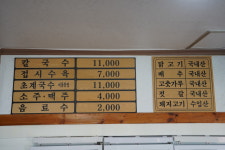 칼국수 11,000
접시수육 7,000
초계국수 11,000
소주·맥주 4,000
음료수 2,000
닭고기 국내산
배추 국내산
고춧가루 국내산
젓갈 국내산
돼지고기 수입산